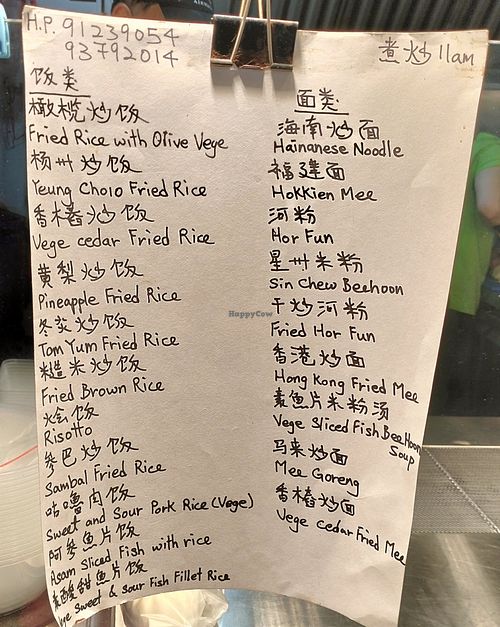 H.P. 91239054
93792014
煮炒 11am
饭类
橄榄炒饭
Fried Rice with Olive Vege
杨州炒饭
Yeung Cholo Fried Rice
香椿炒饭
Vege cedar Fried Rice
黄梨炒饭
Pineapple Fried Rice
冬炎炒饭
Tom Yum Fried Rice
糙米炒饭
Fried Brown Rice
烩饭
Risotto
参巴炒饭
Sambal Fried Rice
咕噜肉饭
Sweet and Sour Pork Rice (Vege)
阿参魚片饭
Asam Sliced Fish with rice
酸甜魚片饭
Sweet & Sour Fish Fillet Rice
面类
海南炒面
Hainanese Noodle
福建面
Hokkien Mee
河粉
Hor Fun
星州米粉
Sin Chew Beehoon
干炒河粉
Fried Hor Fun
香港炒面
Hong Kong Fried Mee
素魚片米粉汤
Vege Sliced Fish BeeHoon
Soup
马来炒面
Mee Goreng
香椿炒面
Vege cedar Fried Mee
HappyCow